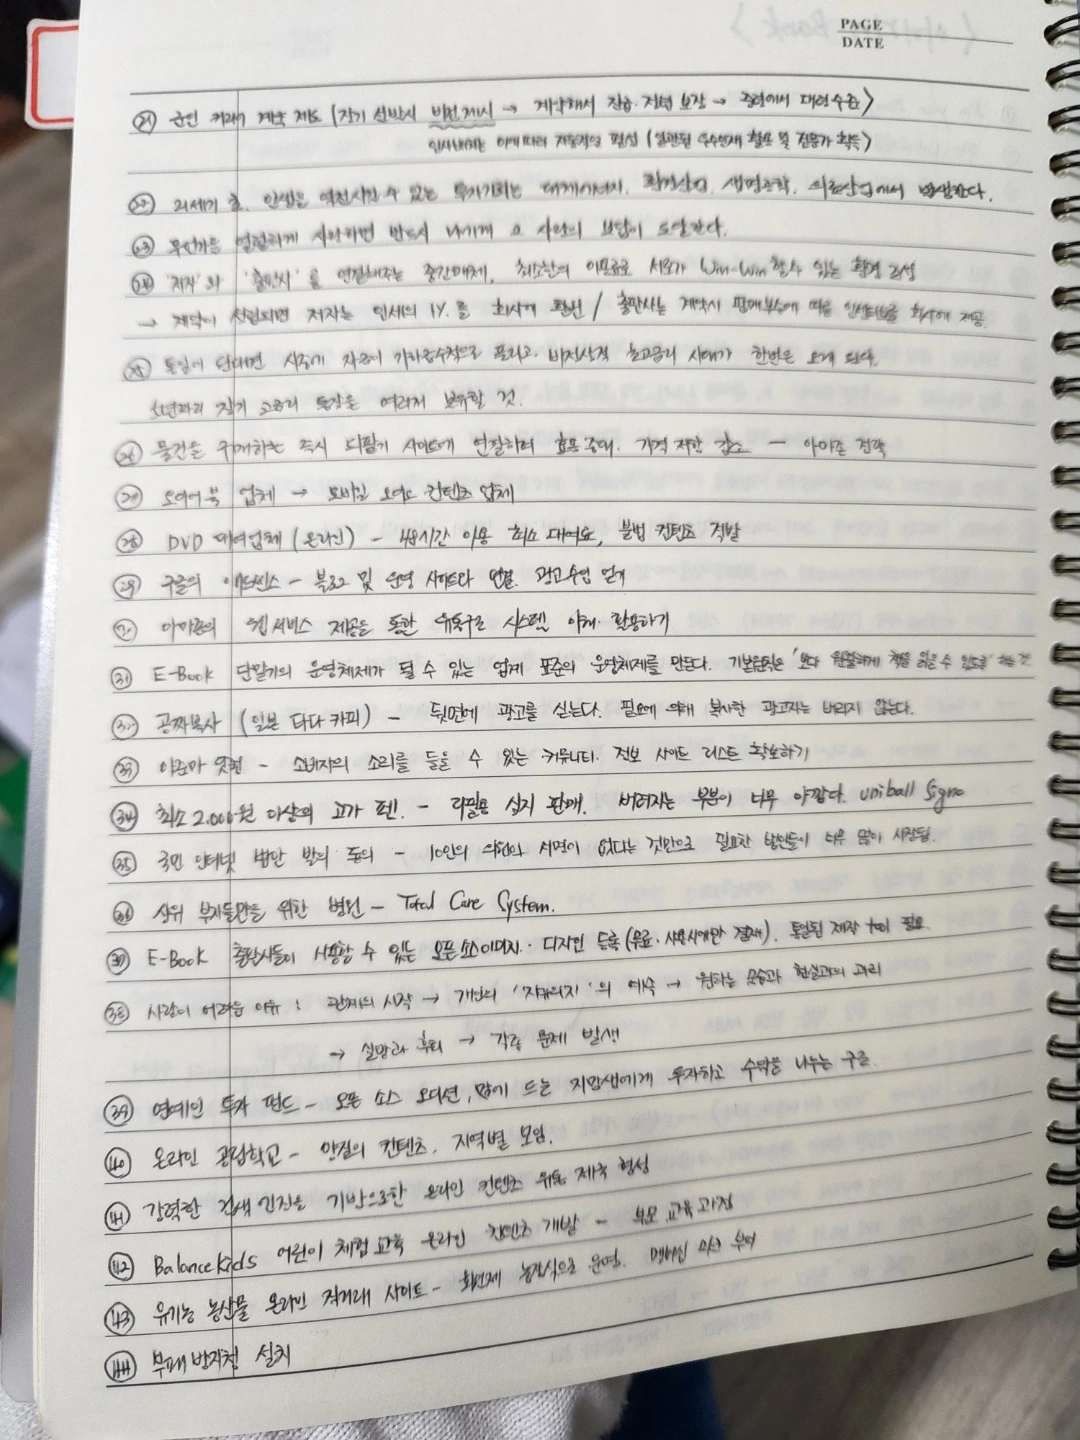 PAGE
DATE
㉑ 군인 커리어 계약 제도 (장기 선발시 비전제시 → 계약해서 진급·직책 보장 →
(일관된 우수인재 활용 및 전문가 획득)
㉒ 21세기 초, 인생을 역전시킬 수 있는 투자기회는 대체에너지, 환경산업, 생명공학, 의료산업에서 발생한다.
㉓ 무언가를 열렬하게 시작하면 반드시 나에게 그 시작의 보답이 도달한다.
㉔ '저자'와 '출판사'를 연결해주는 중간매체, 최소한의 이프로로 서로가 Win-Win 할 수 있는 환경 조성
→ 계약이 성립되면 저자는 인세의 1%를 회사에 환원 / 출판사는 계약시 판매부수에 따른 인센티브를 회사에 제공.
㉕ 통일이 된다면 시중에 자금이 기하급수적으로 풀리고, 비정상적 초고금리 시대가 한번은 오게 된다.
5년짜리 장기 고금리 통장을 여러개 보유할 것.
㉖ 물건을 구매하는 즉시 되팔기 사이트에 연결하여 효용 증대. 가격 저항 감소 - 아마존 전략
㉗ 오디오북 업체 → 모바일 오디오 컨텐츠 업체
㉘ DVD 대여업체 (온라인) - 48시간 이용 최소 대여료, 불법 컨텐츠 적발
㉙ 구글의 애드센스 - 블로그 및 운영 사이트와 연결. 광고수입 얻기
㉚ 아마존의 웹서비스 제공을 통한 유통구조 시스템 이해·활용하기
㉛ E-Book 단말기의 운영체제가 될 수 있는 업계 표준의 운영체제를 만든다. 기본원칙은 '보다 원활하게 책을 읽을 수 있도록' 하는 것
㉜ 공짜복사 (일본 타다카피) - 뒷면에 광고를 싣는다. 필요에 의해 복사한 광고지는 버리지 않는다.
㉝ 아줌마 닷컴 - 소비자의 소리를 들을 수 있는 커뮤니티. 정보 사이트 리스트 확보하기
㉞ 최소 2,000원 이상의 고가 펜. - 리필용 심지 판매. 버려지는 부분이 너무 아깝다. uniball Signo
㉟ 국민 인터넷 법안 발의 동의 - 10인의 의원의 서명이 없다는 것만으로 필요한 법안들이 너무 많이 사장됨.
㊱ 상위 부자들만을 위한 병원 - Total Care System.
㊲ E-Book 출판사들이 사용할 수 있는 오픈 소스이미지·디자인 등록 (무료·사용시에만 결제). 통일된 제작 tool 필요.
㊳ 사랑이 어려운 이유 : 관계의 시작 → 개인의 '자유의지'의 예속 → 원하는 모습과 현실과의 괴리
→ 실망과 후회 → 각종 문제 발생
㊴ 연예인 투자 펀드 - 오픈 소스 오디션, 맘에 드는 지망생에게 투자하고 수익을 나누는 구조.
㊵ 온라인 공립학교 - 양질의 컨텐츠, 지역별 모임.
㊶ 강력한 검색 엔진을 기반으로한 온라인 컨텐츠 유통 제국 형성
㊷ Balance Kids 어린이 체험교육 온라인 컨텐츠 개발 - 부모 교육과정
㊸ 유기농 농산물 온라인 직거래 사이트 - 회원제 농장식으로 운영.
㊹ 부패방지청 설치